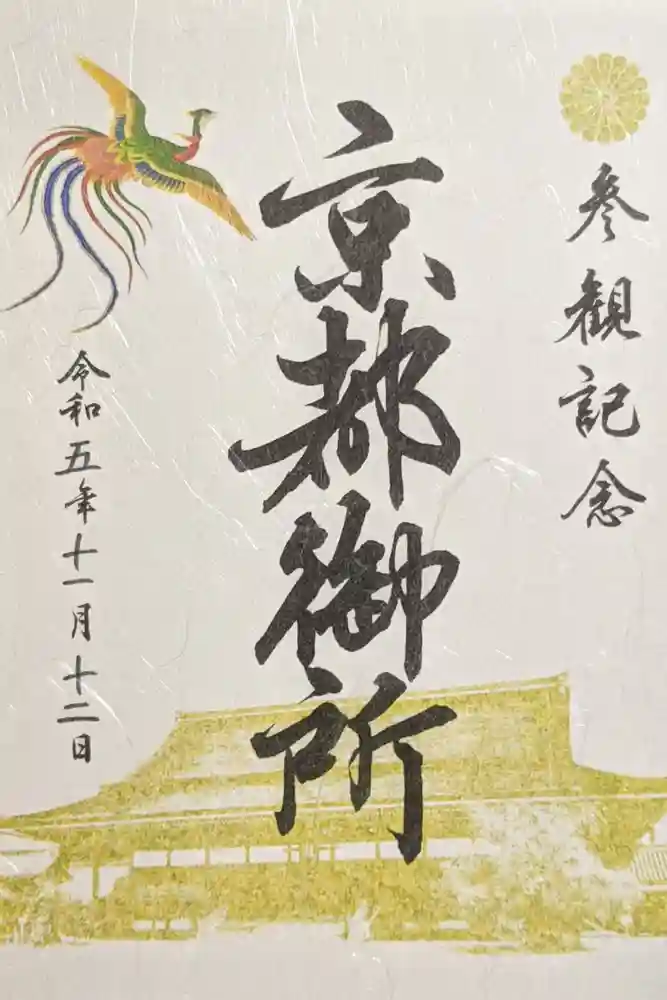 参観記念
京都御所
令和五年十一月十二日